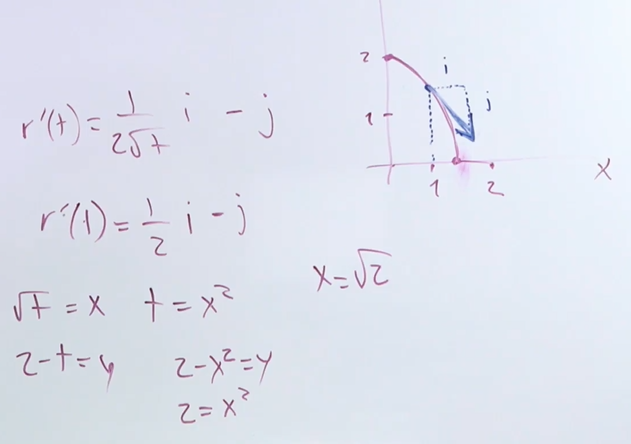 r'(t) = 1/(2√t) i - j
r'(1) = 1/2 i - j
√t = x t = x²
2-t=y 2-x²=y
2=x²
x=√2
2
i
j
1
1 2 x